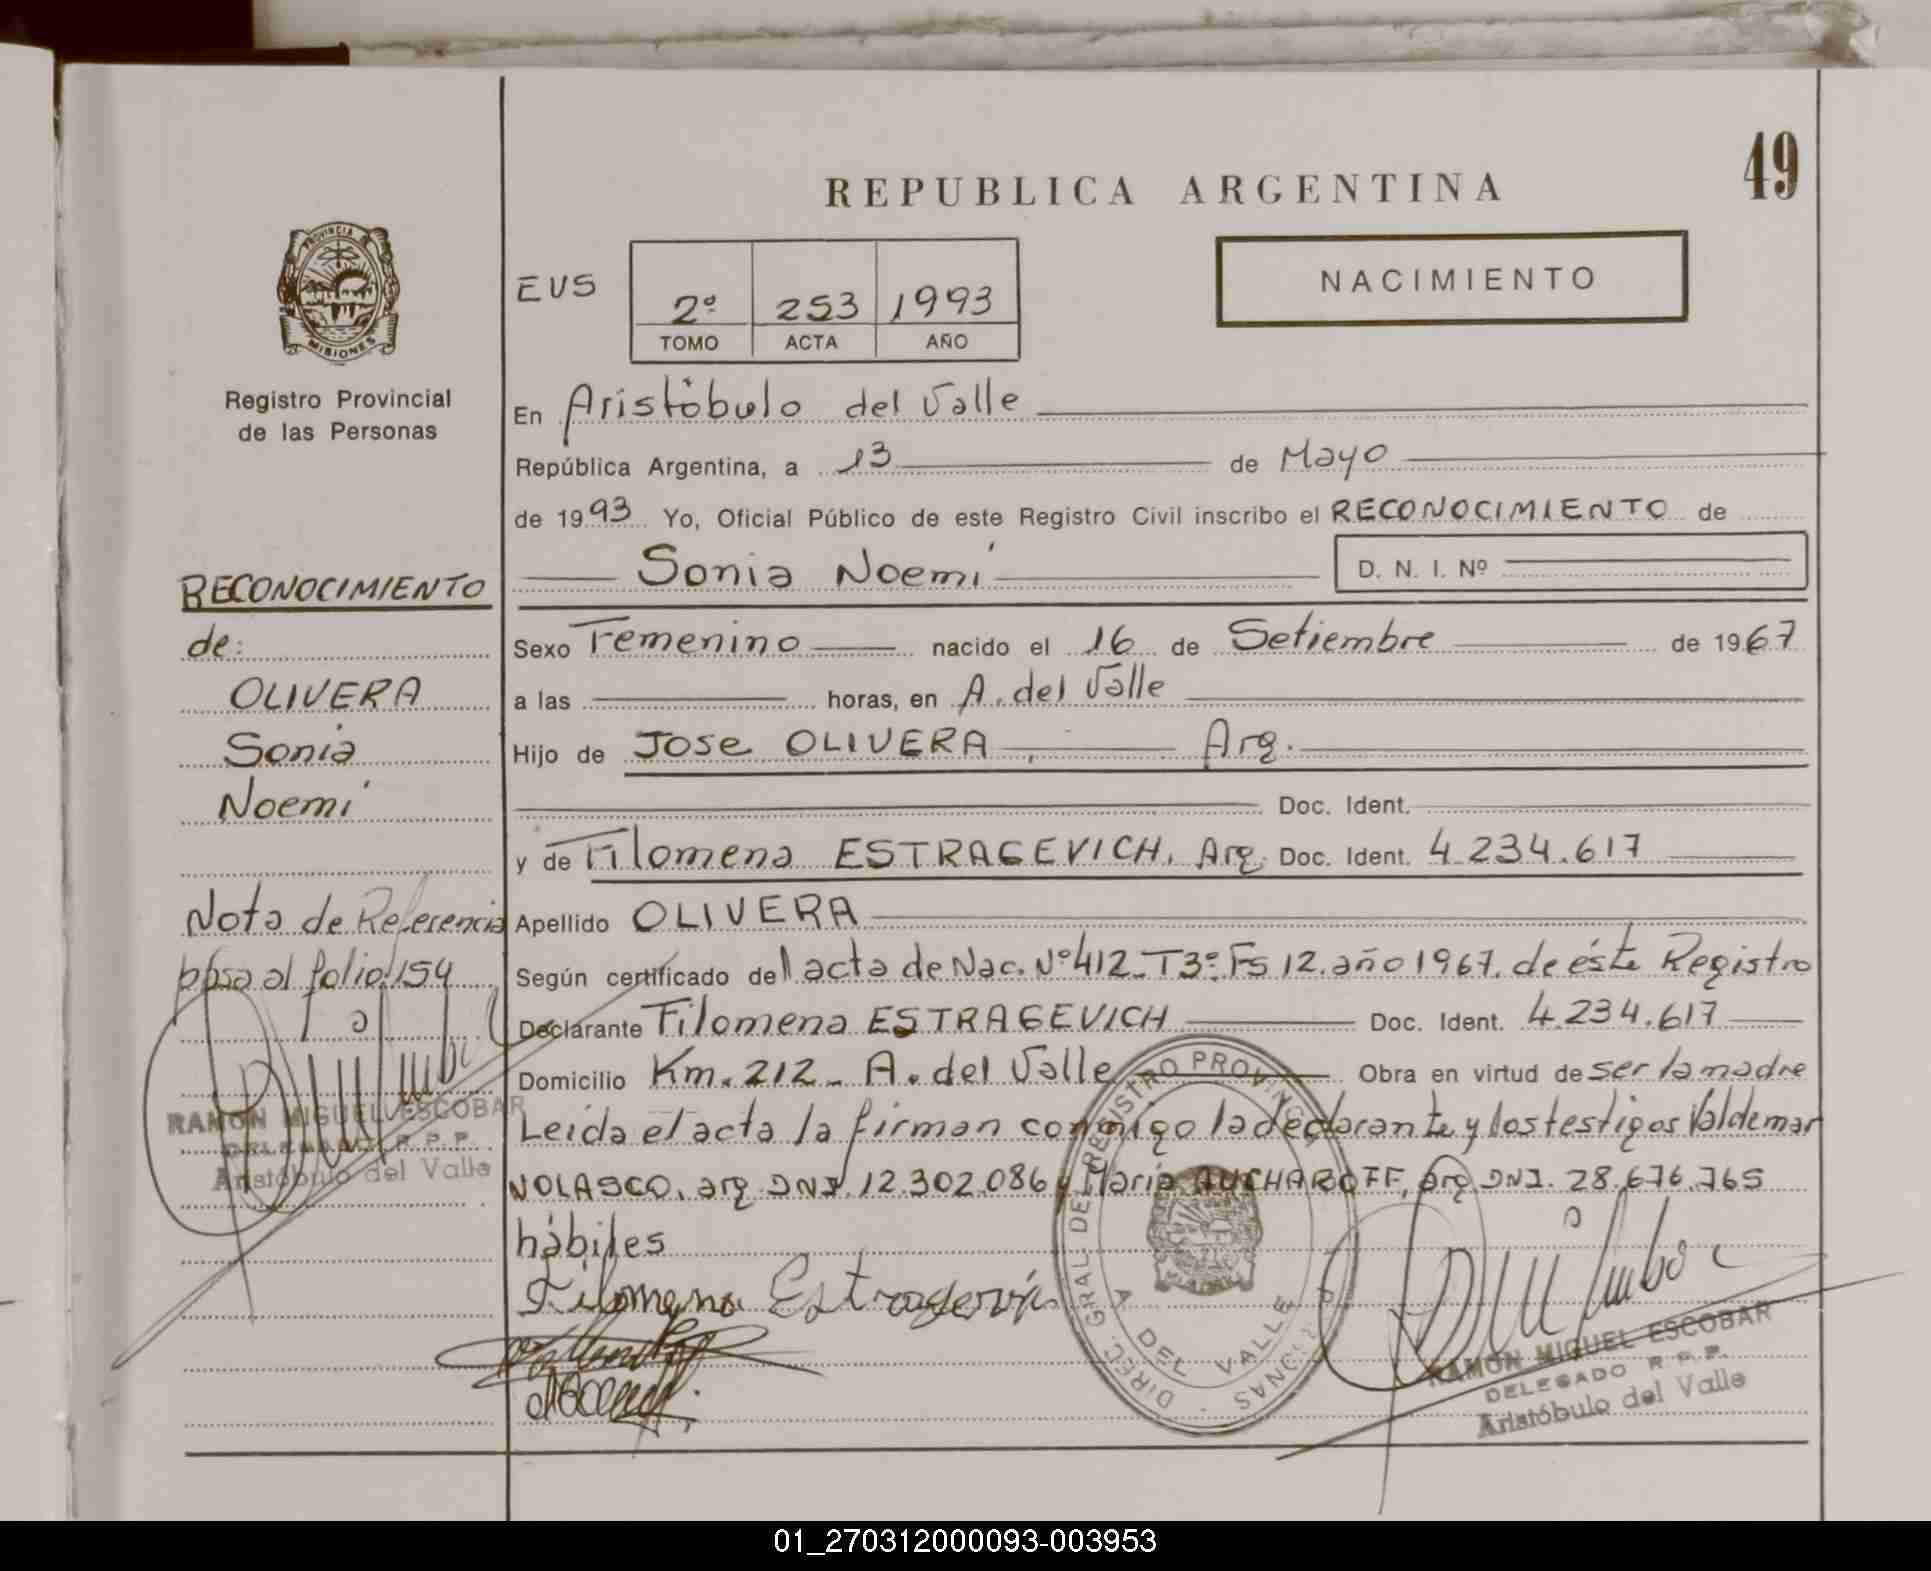 49
REPUBLICA ARGENTINA
NACIMIENTO
EUS
2º 253 1993
TOMO ACTA AÑO
PROVINCIA DE
MISIONES
Registro Provincial
de las Personas
En Aristóbulo del Valle
República Argentina, a 13 de Mayo
de 1993 Yo, Oficial Público de este Registro Civil inscribo el RECONOCIMIENTO de
Sonia Noemí D. N. I. Nº
Sexo Femenino nacido el 16 de Setiembre de 1967
a las horas, en A. del Valle
Hijo de Jose OLIVERA, Arg.
Doc. Ident.
y de Filomena ESTRAGEVICH, Arg. Doc. Ident. 4.234.617
Apellido OLIVERA
Según certificado del acta de Nac. Nº 412- T3º Fs 12. año 1967. de éste Registro
Declarante Filomena ESTRAGEVICH Doc. Ident. 4.234.617
Domicilio Km. 212- A. del Valle Obra en virtud de ser la madre
Leida el acta la firman conmigo la declarante y los testigos Valdemar
NOLASCO, arg DNI. 12.302.086 y Maria AUCHAROFF, arg DNI. 28.676.765
hábiles
Filomena Estragevich
RECONOCIMIENTO
de:
OLIVERA
Sonia
Noemí
Nota de Referencia
pasa al folio 154
RAMON MIGUEL ESCOBAR
DELEGADO R.P.P.
Aristóbulo del Valle
DIREC. GRAL DEL REGISTRO PROVINCIAL
A DEL VALLE
RAMON MIGUEL ESCOBAR
DELEGADO R.P.P.
Aristóbulo del Valle
01_270312000093-003953